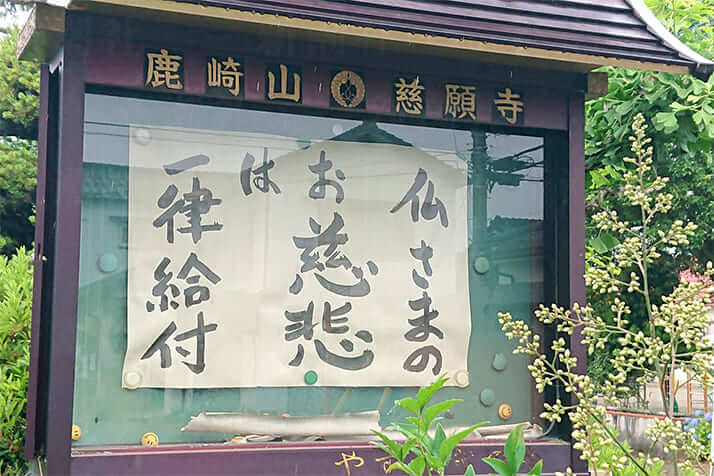 鹿崎山 慈願寺
仏さまの
お慈悲
は
一律給付